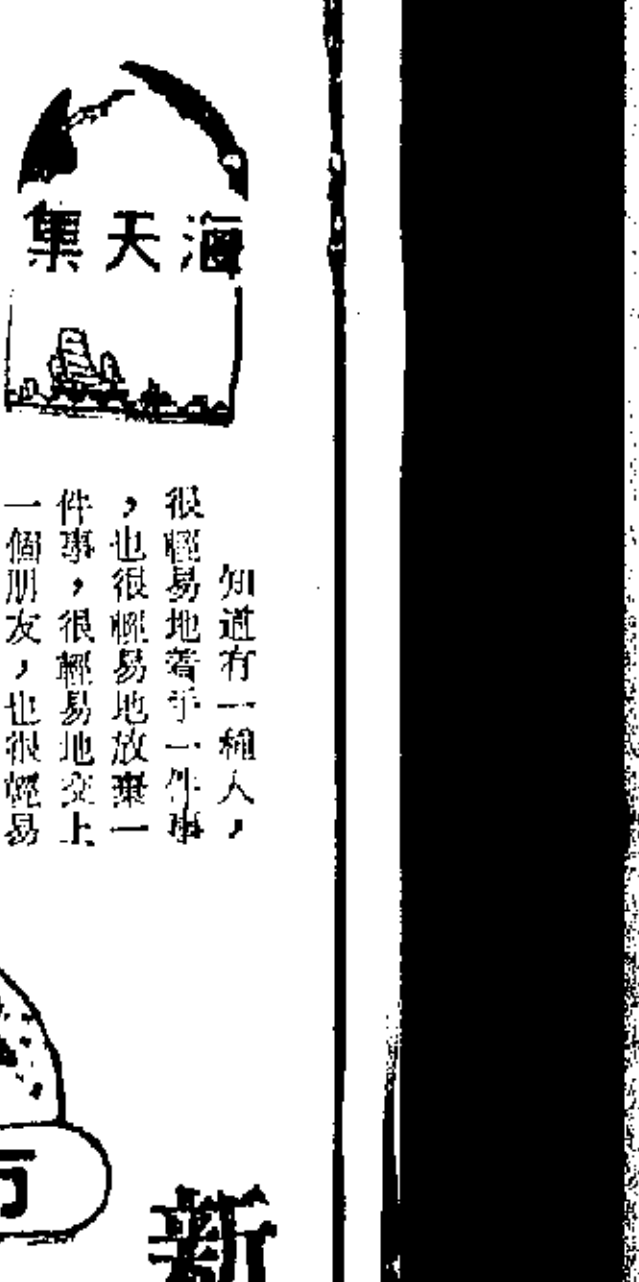 海天集
知道有一種人，
很輕易地着手一件事
，也很輕易地放棄一
件事，很輕易地交上
一個朋友，也很輕易
新